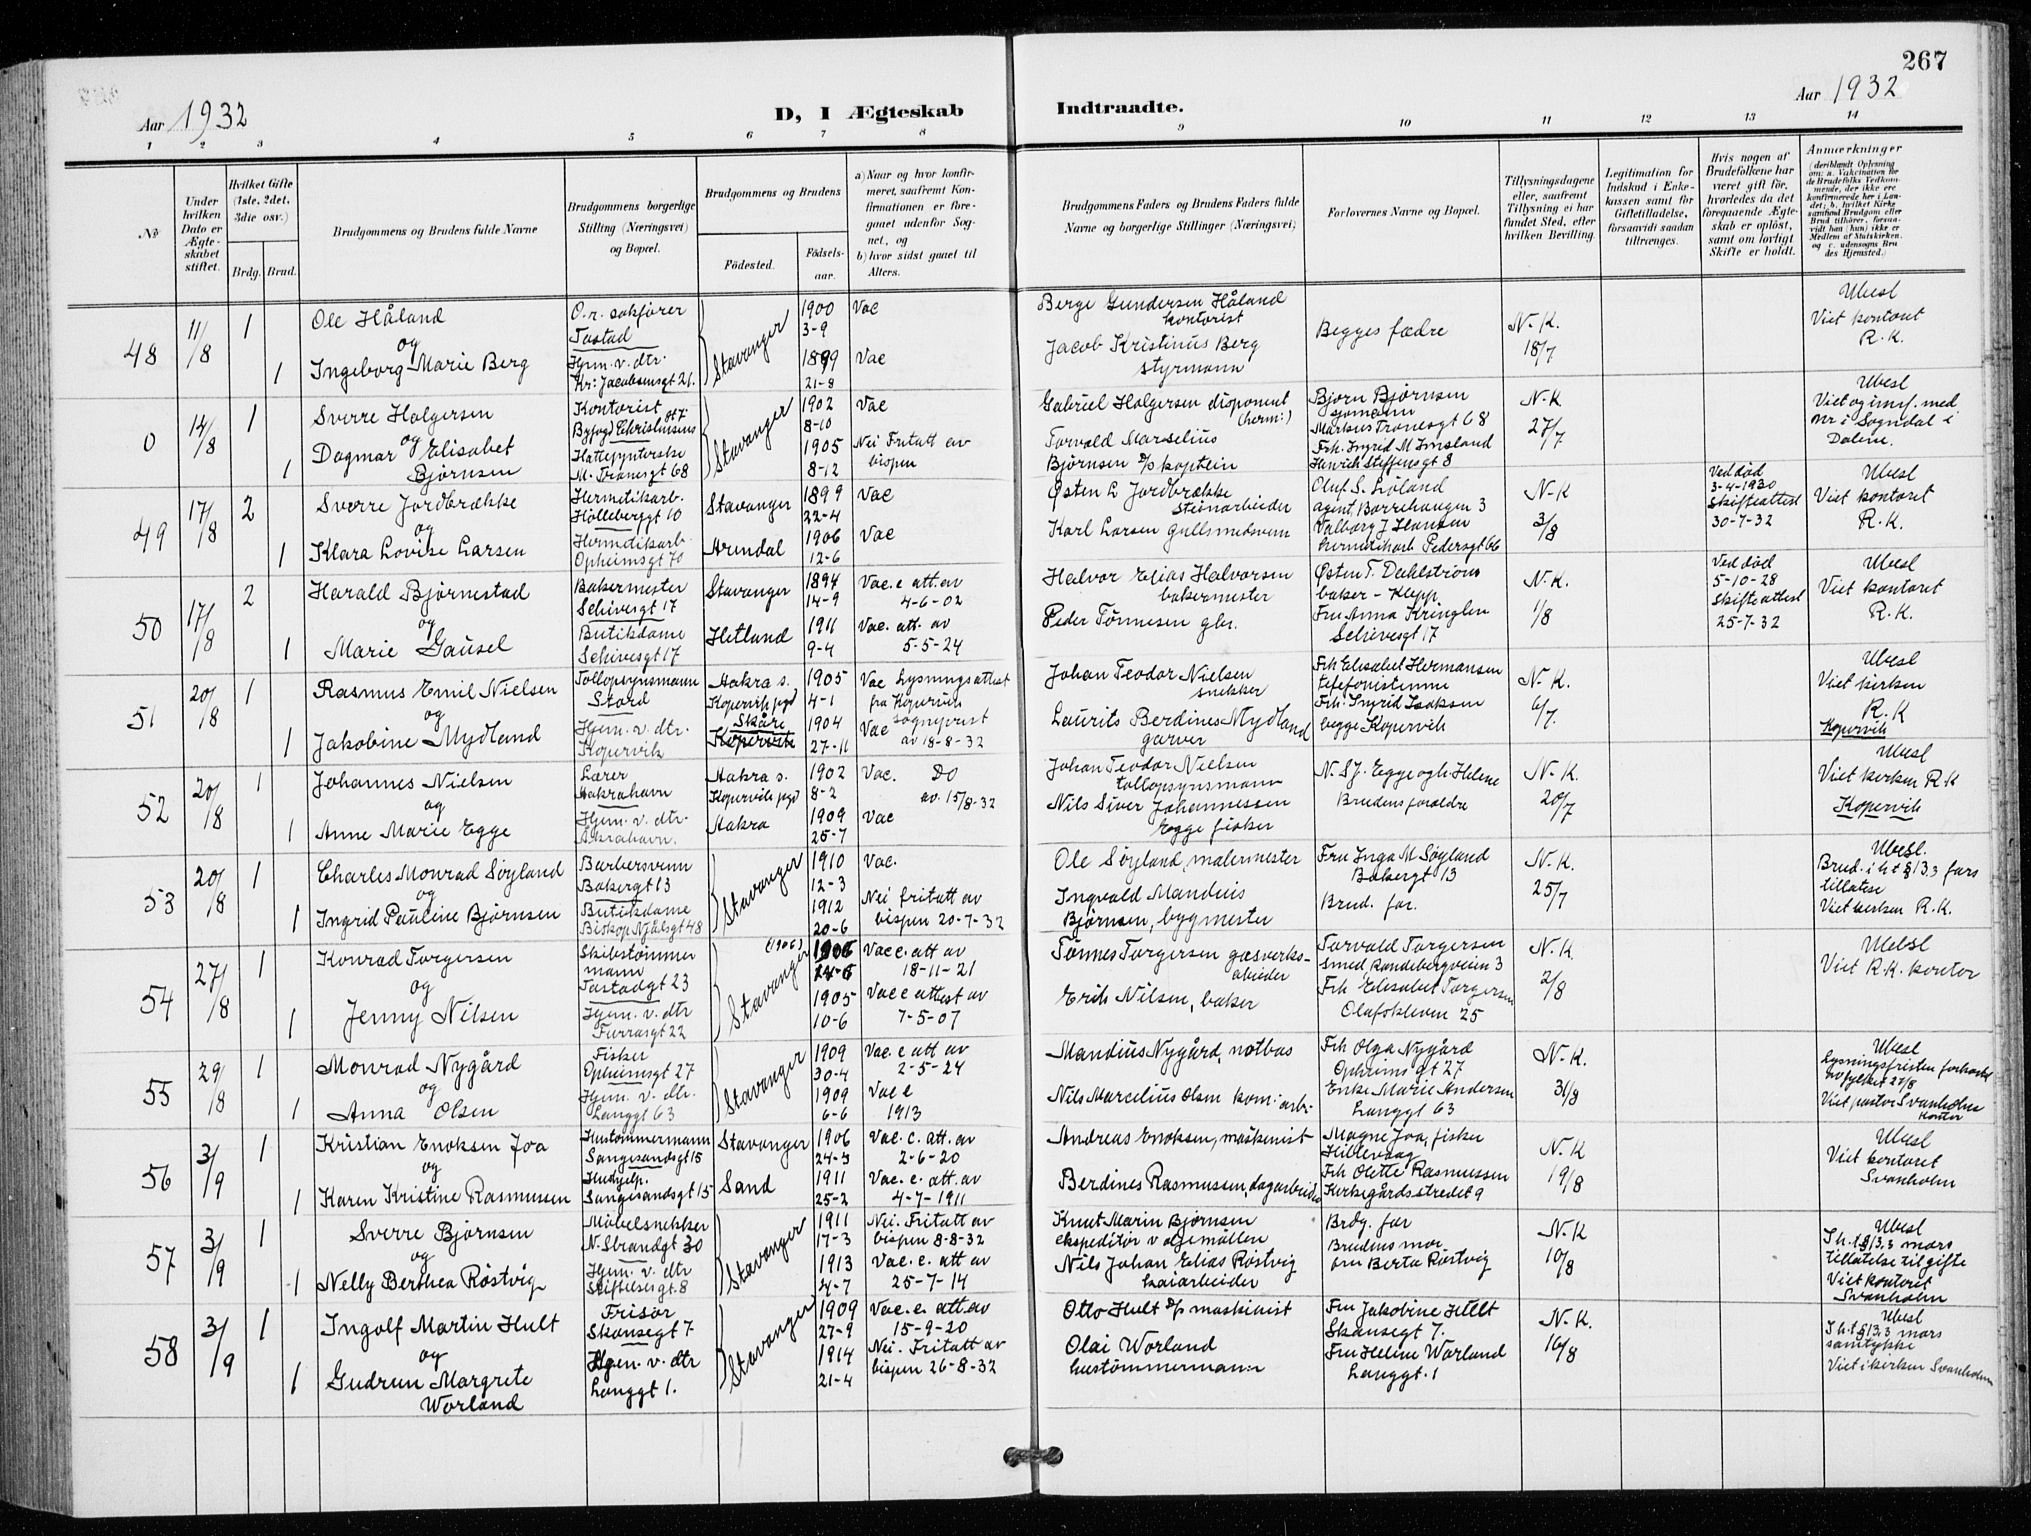 267
Aar 1932
D, I Ægteskab Indtraadte.
Aar 1932
1 2 3 4 5 6 7 8 9 10 11 12 13 14
No
Under hvilken Dato er Ægteskabet stiftet.
Hvilket Gifte (1ste, 2det, 3die osv.)
Brdg. Brud.
Brudgommens og Brudens fulde Navne
Brudgommens borgerlige Stilling (Næringsvei) og Bopæl.
Brudgommens og Brudens
Fødested. Fødselsaar.
a) Naar og hvor konfirmeret, saafremt Konfirmationen er foregaaet udenfor Sognet, og
b) hvor sidst gaaet til Alters.
Brudgommens Faders og Brudens Faders fulde Navne og borgerlige Stillinger (Næringsvei)
Forlovernes Navne og Bopæl.
Tillysningsdagene eller, saafremt Tillysning ei har fundet Sted, efter hvilken Bevilling.
Legitimation for Indskud i Enkekassen samt for Giftetilladelse, forsaavidt saadan tiltrænges.
Hvis nogen af Brudefolkene har været gift før, hvorledes da det foregaaende Ægteskab er opløst, samt om lovligt Skifte er holdt.
Anmærkninger
(deriblandt Oplysning om: a. Vakcination for de Brudefolks Vedkommende, der ikke ere konfirmerede her i Landet; b. hvilket Kirkesamfund Brudgom eller Brud tilhører, forsaavidt han (hun) ikke er Medlem af Statskirken, og c. udensogns Brudes Hjemsted.)
48 11/8 1 Ole Håland O.r. sakfører Tastad Stavanger 1900 3-9 Vac Berge Gundersen Håland kontorist Begges fædre N.K. 18/7 Ubesl Viet kontoret R.K.
og
1 Ingeborg Marie Berg Hjem. v. dtr. Kr: Jacobsensgt 21. 1899 21-8 Vac Jacob Kristinus Berg styrmann
0 14/8 1 Sverre Holgersen Kontorist Byfogd Christensens gt 7 Stavanger 1902 8-10 Vac Gabriel Holgersen disponent (herm:) Bjørn Bjørnsen sjømann Markus Tranesgt 68 N.K 27/7 Ubesl Viet og innf. med nr i Sogndal i Dalene.
og
1 Dagmar Elisabet Bjørnsen Hattepynterske M. Tranesgt 68 1905 8-12 Nei Fritatt av bispen Torvald Marselius Bjørnsen d/s kaptein Frk. Ingrid M Imsland Henrich Steffensgt 8
49 17/8 2 Sverre Jordbrække Hermetikarb. Holleberggt 10 Stavanger 1899 22-4 Vac Østen L Jordbrække stenarbeider Oluf S. Løland agent, Barrehaugen 3 N.K 3/8 Ved død 3-4-1930 Skifteattest 30-7-32 Ubesl Viet kontoret R.K.
og
1 Klara Lovise Larsen Hermetikarb Opheimsgt 70 Arendal 1906 12-6 Vac Karl Larsen gullsmedsvenn Valborg J Hansen hermetikarb Pedersgt 66
50 17/8 2 Harald Bjørnestad Bakermester Schivesgt 17 Stavanger 1894 14-9 Vac. e att. av 4-6-02 Halvor Elias Halvorsen bakermester Østen T. Dahlstrøm baker - Klepp N.K. 1/8 Ved død 5-10-28 Skifteattest 25-7-32 Ubesl Viet kontoret R.K.
og
1 Marie Gausel Butikdame Schivesgt 17 Hetland 1911 9-4 Vac. att. av 5-5-24 Peder Tønnesen gbr. Fru Anna Kringlen Schivesgt 17
51 20/8 1 Rasmus Emil Nielsen Tollopsynsmann Stord Aakra s. Kopervik pgd 1905 4-1 Vac Lysningsattest fra Kopervik sogneprest av 18-8-32 Johan Teodor Nielsen snekker Frk Elisabet Hermansen telefonistinne N.K. 6/7. Ubesl Viet kirken R.K Kopervik
og
1 Jakobine Mydland Hjem. v. dtr. Kopervik Skåre Kopervik 1904 27-11 Vac Laurits Berdines Mydland garver Frk. Ingrid Isaksen begge Kopervik
52 20/8 1 Johannes Nielsen Lærer Aakrahavn Aakra s. Kopervik pgd 1902 8-2 Vac. Do av. 15/8-32 Johan Teodor Nielsen tollopsynsmann N. SJ. Egge og h. Helene Brudens foreldre N.K. 20/7 Ubesl Viet kirken R.K Kopervik
og
1 Anne Marie Egge Hjem. v. dtr. Akrahavn. Aakra 1909 25-7 Vac Nils Siver Johannessen Egge fisker
53 20/8 1 Charles Monrad Søyland Barbersvenn Bakergt 13 Stavanger 1910 12-3 Vac. Ole Søyland, malermester Fru Inga M Søyland Bakergt 13 N.K. 25/7 Ubesl. Brud. i h t § 13.3 fars tillatese Viet kirken R.K.
og
1 Ingrid Pauline Bjørnsen Butikdame Biskop Njålsgt 48 1912 20-6 Nei fritatt av bispen 20-7-32 Ingvald Mandius Bjørnsen, bygmester Brud. far.
54 27/8 1 Konrad Torgersen Skibstømmermann Tastadgt 23 Stavanger (1906) 1906 24-6 Vac e. att av 18-11-21 Tønnes Torgersen gasverksarbeider Torvald Torgersen smed Randebergveien 3 N.K. 2/8 Ubesl Viet R.K. kontor
og
1 Jenny Nilsen Hjem. v. dtr Furrasgt 22 1905 10-6 Vac e attest av 7-5-07 Erik Nilsen, baker Frk Elisabet Torgersen Olafskleven 25
55 29/8 1 Monrad Nygård Fisker Opheimsgt 27 Stavanger 1909 30-4 Vac. e att av 2-5-24 Mandius Nygård, notbas Frk Olga Nygård Opheimsgt 27 N.K. 31/8 Ubesl Lysningsfristen forkortet av fylket 27/8 Viet pastor Svanholms kontor
og
1 Anna Olsen Hjem. v. dtr. Langgt 63 1909 6-6 Vac e 1913 Nils Marcelius Olsen kom: arb. Enke Marie Andersen Langgt 63
56 3/9 1 Kristian Enoksen Joa Hustømmermann Sangesandsgt 15 Stavanger 1906 24-3 Vac. e. att. av 2-6-20 Andreas Enoksen, maskinist Magne Joa, fisker Hillevaag N.K 19/8 Ubesl Viet kontoret Svanholm
og
1 Karen Kristine Rasmussen Hushjelp. Sangesandsgt 15 Sand 1911 25-2 Vac. e. att. av 4-7-1911 Berdines Rasmussen, dagarbeider Frk Olette Rasmussen Kirkegårdsstredet 9
57 3/9 1 Sverre Bjørnsen Møbelsnekker N. Strandgt 30 Stavanger 1911 17-3 Nei. Fritatt av bispen 8-8-32 Knut Marin Bjørnsen ekspeditør v oljemøllen Brdg. far N.K 10/8 Ubesl I h.t § 13.3 mors tillatelse til gifte Viet kontoret Svanholm
og
1 Nelly Berthea Røstvig Hjem. v. dtr Stiftelsesgt. 8 1913 4-7 Vac. e. att av 25-7-14 Nils Johan Elias Røstvig kaiarbeider Brudens mor fru Berta Røstvig
58 3/9 1 Ingolf Martin Hult Frisør Skansegt 7 Stavanger 1909 27-9 Vac. e. att. av 15-9-20 Otto Hult d/s maskinist Fru Jakobine Hult Skansegt 7. N.K. 16/8 Ubesl I h.t § 13.3 mors samtykke Viet i kirken Svanholm
og
1 Gudrun Margrete Worland Hjem. v. dtr Langgt 1. 1914 21-4 Nei. Fritatt av bispen 26-8-32 Olai Worland hustømmermann Fru Helene Worland Langgt. 1